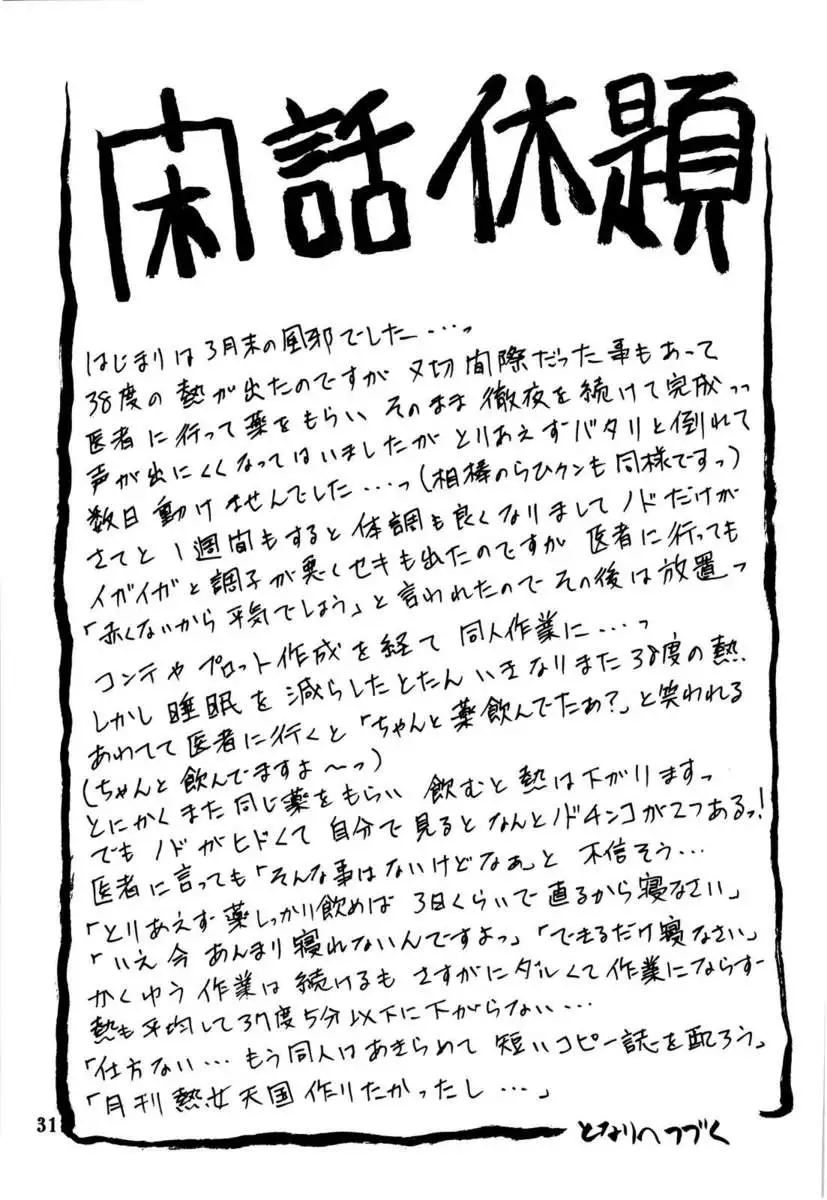 閑話休題
はじまりは3月末の風邪でした…っ
38度の熱が出たのですが〆切間際だった事もあって
医者に行って薬をもらい そのまま徹夜を続けて完成っっ
声が出にくくなってはいましたが とりあえずバタリと倒れて
数日動けませんでした…っ(相棒のらひクンも同様ですっ)
さてと 1週間もすると体調も良くなりまして ノドだけが
イガイガと調子が悪くセキも出たのですが 医者に行っても
「赤くないから平気でしょう」と言われたので その後は放置っ
コンテや プロット作成を経て 同人作業に…っ
しかし睡眠を減らしたとたん いきなりまた38度の熱
あわてて医者に行くと「ちゃんと薬飲んでたあ?」と笑われる
(ちゃんと飲んでますよ〜っ)
とにかくまた同じ薬をもらい 飲むと熱は下がりますっ
でもノドがヒドくて 自分で見ると なんとノドチンコが2つあるっ!
医者に言っても「そんな事はないけどなぁ」と 不信そう…
「とりあえず薬しっかり飲めば 3日くらいで直るから寝なさい」
「いえ今あんまり寝れないんですよっ」「できるだけ寝なさい」
かくゆう作業は続けるも さすがにダルくて作業にならず
熱も平均して37度5分以下に下がらない…
「仕方ない…もう同人はあきらめて 短いコピー誌を配ろう」
「月刊熱女天国作りたかったし…」
となりへつづく
31